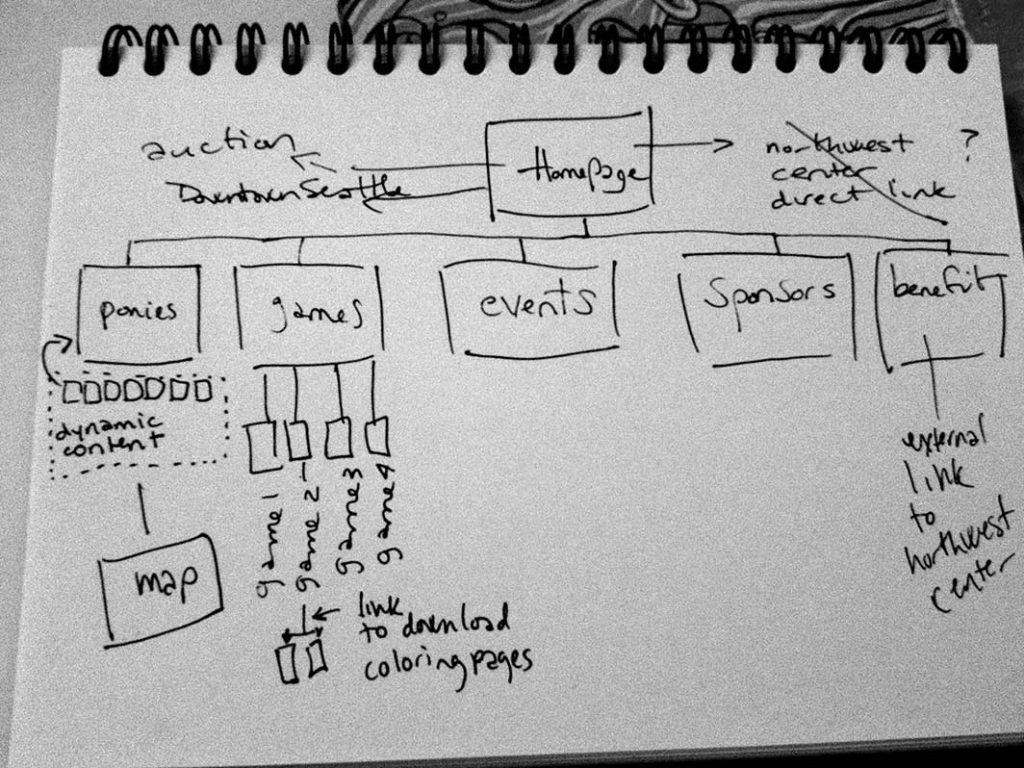 auction
Downtown Seattle
Homepage
northwest ?
center
direct link
ponies
games
events
Sponsors
benefit
dynamic
content
map
game 1
game 2
game 3
game 4
link
to download
coloring pages
external
link
to
northwest
center